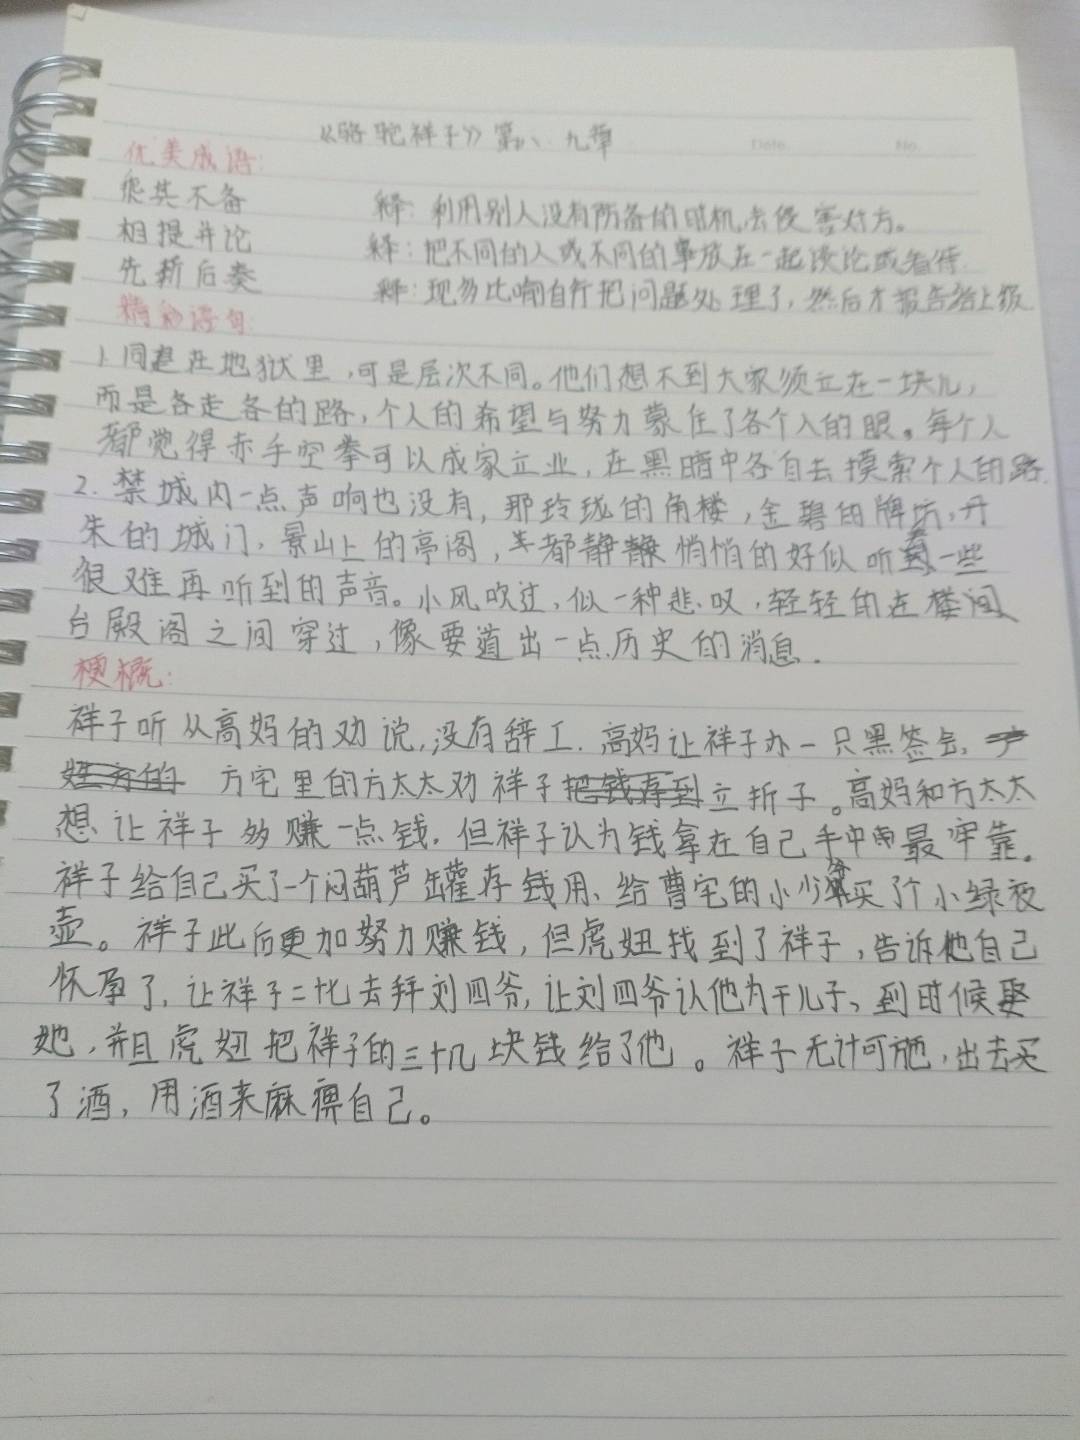 《骆驼祥子》第八、九章
Date.
No.
优美成语:
乘其不备 释: 利用别人没有防备的时机,去侵害对方。
相提并论 释: 把不同的人或不同的事放在一起谈论或看待.
先斩后奏 释: 现多比喻自行把问题处理了,然后才报告给上级.
精彩语句:
1.同是在地狱里,可是层次不同。他们想不到大家须立在一块儿,
而是各走各的路,个人的希望与努力蒙住了各个人的眼。每个人
都觉得赤手空拳可以成家立业,在黑暗中各自去摸索个人的路.
2.禁城内一点声响也没有,那玲珑的角楼,金碧的牌坊,丹
朱的城门,景山上的亭阁,都静静悄悄的好似听着一些
很难再听到的声音。小风吹过,似一种悲叹,轻轻的在楼间
台殿阁之间穿过,像要道出一点历史的消息.
梗概:
祥子听从高妈的劝说,没有辞工.高妈让祥子办一只黑签会,
方宅里的方太太劝祥子立折子。高妈和方太太
想让祥子多赚一点钱,但祥子认为钱拿在自己手中最牢靠。
祥子给自己买了一个闷葫芦罐存钱用、给曹宅的小少爷买了个小绿夜
壶。祥子此后更加努力赚钱,但虎妞找到了祥子,告诉他自己
怀孕了,让祥子二十七去拜刘四爷,让刘四爷认他为干儿子,到时候娶
她,并且虎妞把祥子的三十几块钱给了他。祥子无计可施,出去买
了酒,用酒来麻痹自己。